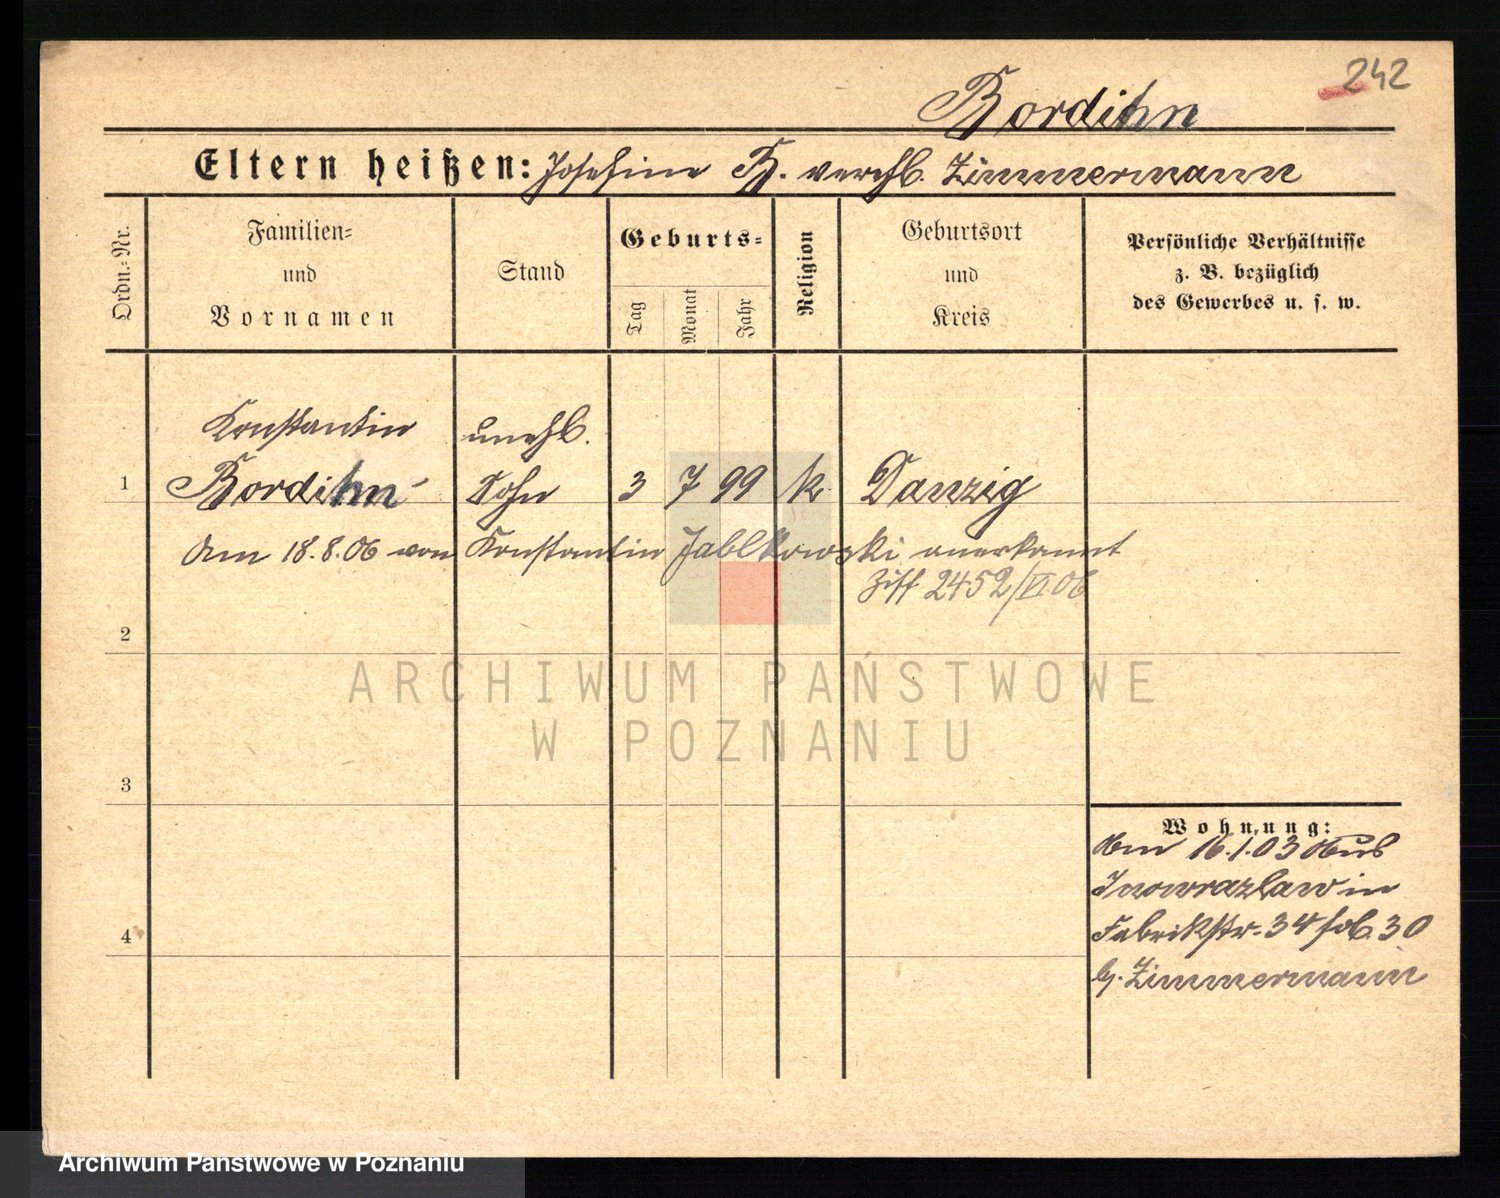 242
Bordihn
Eltern heißen: Josefine B. verehl. Zimmermann
Ordn.-Nr.
Familien-
und
Vornamen
Stand
Geburts-
Tag
Monat
Jahr
Religion
Geburtsort
und
Kreis
Persönliche Verhältnisse
z. B. bezüglich
des Gewerbes u. s. w.
Konstantin unehl.
1 Bordihn Sohn 3 7 99 k. Danzig
Am 18.8.06 von Konstantin Jablkowski anerkannt
Ziff 2452/VI.06
2
ARCHIWUM PAŃSTWOWE
W POZNANIU
3
Wohnung:
Am 16.1.03 aus
Inowrazlaw in
4
Fabrikstr. 34 fol. 30
b. Zimmermann
Archiwum Państwowe w Poznaniu